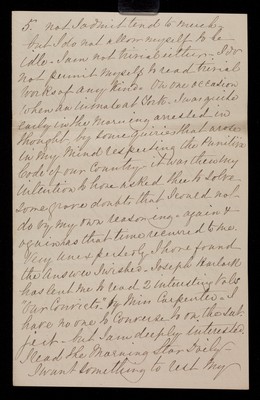 5. not I admit tend to much
but I do not allow myself to be
idle. I am not trivial either. I do
not permit myself to read trivial
works of any kind. On one occasion
when an inmate at Cork. I was quite
early in the morning arrested in
thought by some ideas that arose
in my mind respecting the Punitive
Code of our Country. it was then my
intention to have asked thee to solve
some grave doubts that I could not
do by my own reasoning. again &
again has that time recurred to me.
Very unexpectedly I have found
the answer I wished. Joseph Harlock
has lent me to read 2 interesting Vols
"Our Convicts" by Miss Carpenter. I
have no one to converse to on the sub
ject. but I am deeply interested.
I read the Morning Star Daily.
I want something to rest my